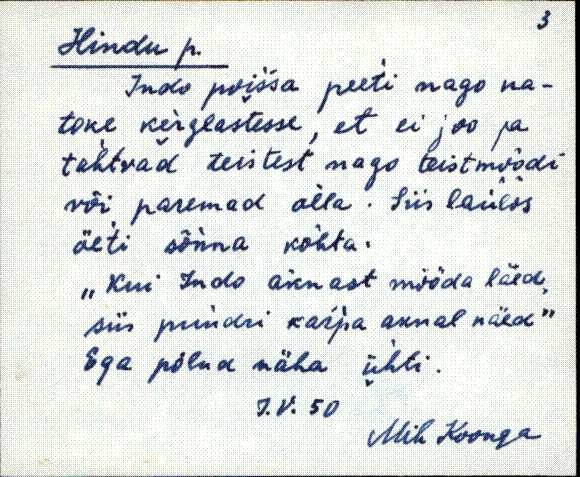 3
Hindu p.
Indo poišsa peeti nago na-
toke kerglastesse, et ei joo ja
tahtvad teistest nago teistmöödi
või paremad olla. Siis laulõs
öeti sõnna kohta.
„Kui Indo aknast mööda läed,
siis puudri karpa aknal näed"
Ega põlnd näha ühti.
I.V. 50
Mih Koonga